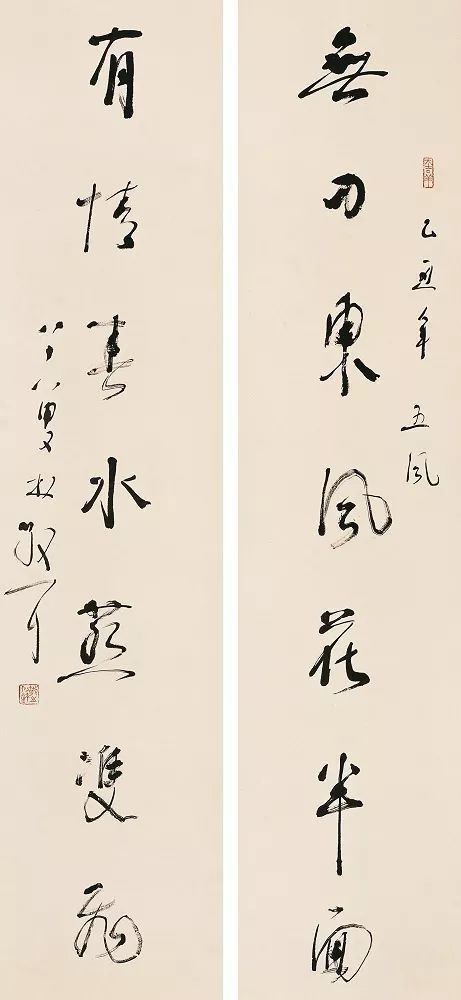 無力東風花半面
乙丑年 五風
有情春水燕雙飛
八十八叟林散耳